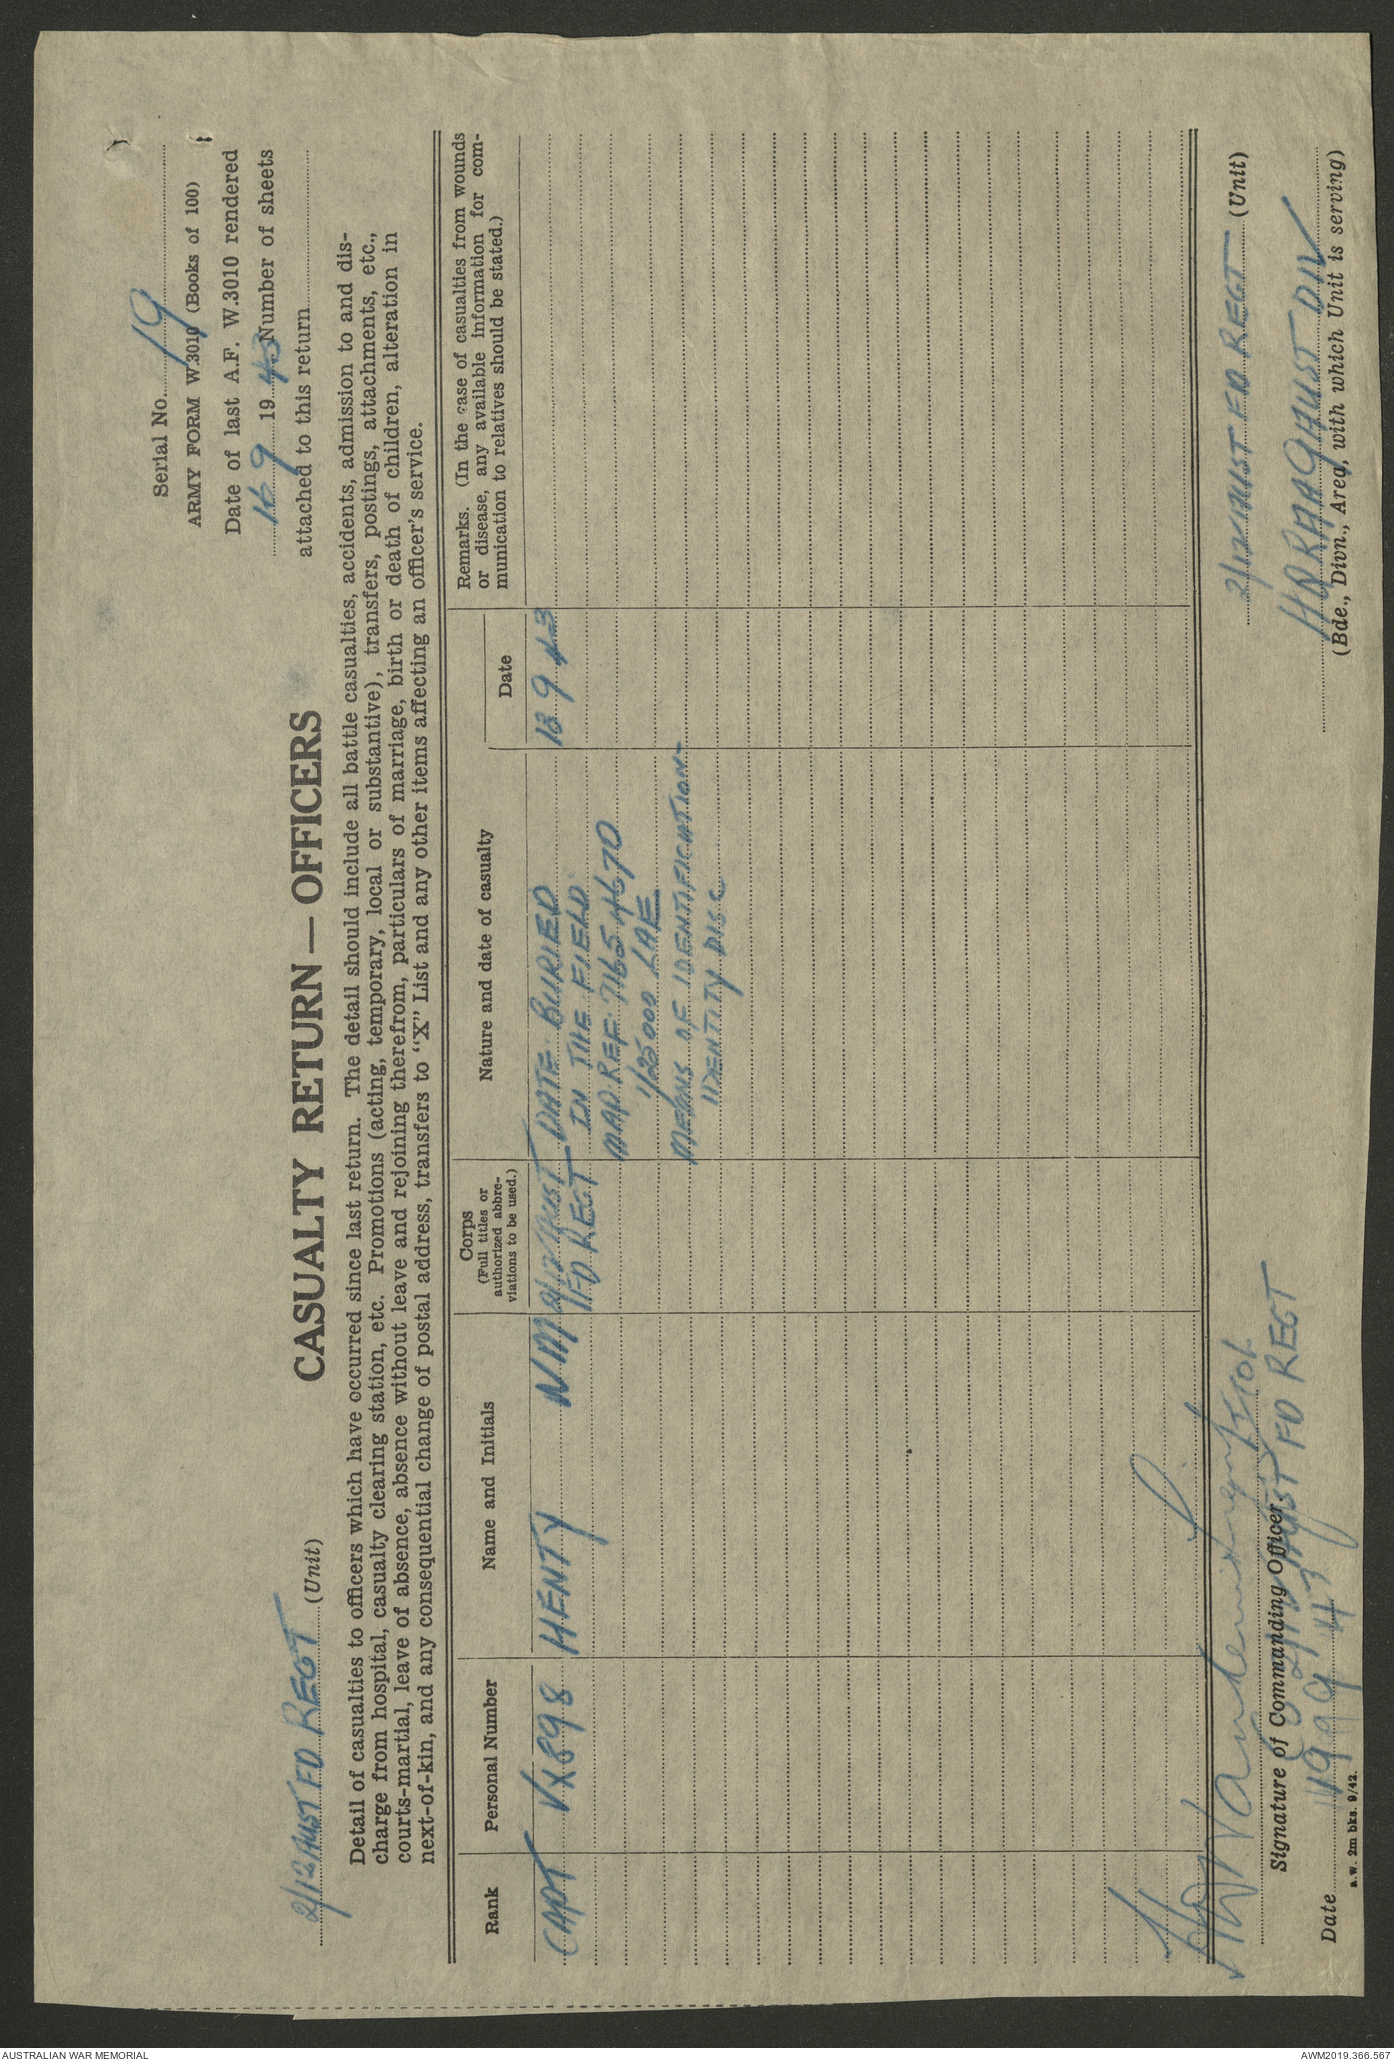 Serial No. 19
ARMY FORM W.3010 (Books of 100)
Date of last A.F. W.3010 rendered
16 9 1943 Number of sheets
attached to this return
2/12 AUST FD REGT (Unit)
CASUALTY RETURN — OFFICERS
Detail of casualties to officers which have occurred since last return. The detail should include all battle casualties, accidents, admission to and dis-
charge from hospital, casualty clearing station, etc. Promotions (acting, temporary, local or substantive), transfers, postings, attachments, etc.,
courts-martial, leave of absence, absence without leave and rejoining therefrom, particulars of marriage, birth or death of children, alteration in
next-of-kin, and any consequential change of postal address, transfers to "X" List and any other items affecting an officer's service.
Rank
Personal Number
Name and Initials
Corps
(Full titles or
authorized abbre-
viations to be used.)
Nature and date of casualty
Date
Remarks. (In the case of casualties from wounds
or disease, any available information for com-
munication to relatives should be stated.)
CAPT VX898 HENTY NM 2/12 AUST DATE BURIED 13 9 43
FD REGT IN THE FIELD
MAP REF 7165 4670
1/25000 LAE
MEANS OF IDENTIFICATION-
IDENTITY DISC
2/12 AUST FD REGT (Unit)
Signature of Commanding Officer
2/12 AUST FD REGT
HQ RAA 9 AUST DIV
(Bde., Divn., Area, with which Unit is serving)
Date 19 9 43
a.w. 2m bks. 9/42.
AUSTRALIAN WAR MEMORIAL
AWM2019.366.567